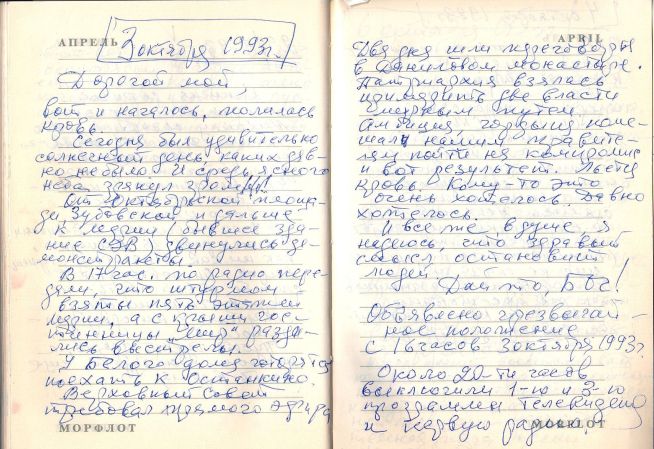 АПРЕЛЬ
3 октября 1993 г.
Дорогой мой,
вот и началось, пролилась
кровь.
Сегодня был удивительно
солнечный день, каких дав-
но не было. И средь ясного
неба грянул гром!!!
От Октябрьской площа-
ди, Зубовской и дальше
к мэрии (бывшее зда-
ние СЭВ) двинулись де-
монстранты.
В 17 час. по радио пере-
дали, что штурмом
взяты пять этажей
мэрии, а с крыши гос-
тиницы "Мир" разда-
лись выстрелы.
У Белого дома готовятся
поехать к Останкино.
Верховный Совет
требовал прямого эфира
МОРФЛОТ
APRIL
Два дня шли переговоры
в Даниловом монастыре.
Патриархия взялась
примирить две власти
мирным путем.
Амбиция, гордыня поме-
шали нашим правите-
лям пойти на компромис
и вот результат. Льется
кровь. Кому-то это
очень хотелось. Давно
хотелось.
И все же в душе, я
надеюсь, что здравый
смысл остановит
людей.
Дай-то, Бог!
Объявлено чрезвычай-
ное положение
с 16 часов 3 октября 1993 г.
Около 20-ти часов
выключили 1-ю и 3-ю
программы телевидения
и первую радио.
MORFLOT